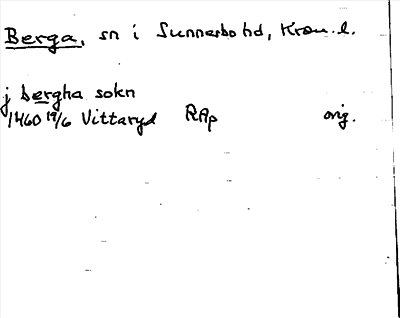 Berga, sn i Sunnerbo hd, Kron. l.
j bergha sokn
1460 19/6 Vittaryd RAp orig.